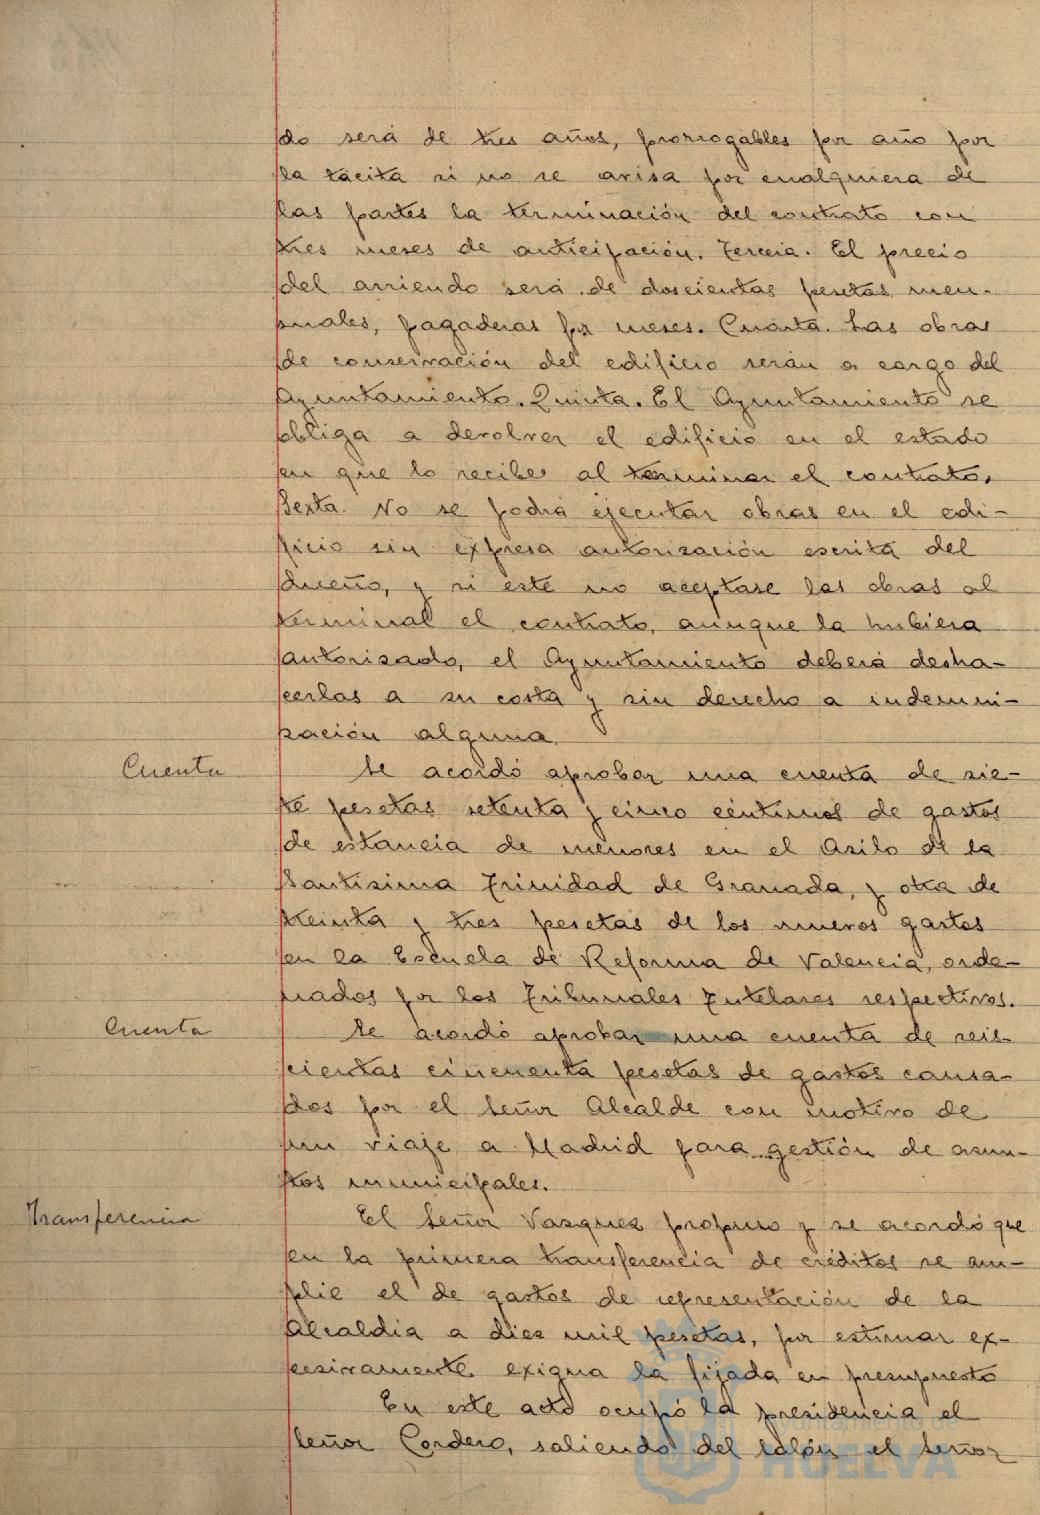 do será de tres años, prorrogables por año por
la tácita si no se avisa por cualquiera de
las partes la terminación del contrato con
tres meses de anticipación. Tercera. El precio
del arriendo será de doscientas pesetas men-
suales, pagaderas por meses. Cuarta. Las obras
de conservación del edificio serán a cargo del
Ayuntamiento. Quinta. El Ayuntamiento se
obliga a devolver el edificio en el estado
en que lo recibe al terminar el contrato.
Sexta. No se podrá ejecutar obras en el edi-
ficio sin expresa autorización escrita del
dueño, y si este no aceptase las obras al
terminal el contrato, aunque la hubiera
autorizado, el Ayuntamiento deberá desha-
cerlas a su costa y sin derecho a indemni-
zación alguna.
Cuenta Se acordó aprobar una cuenta de sie-
te pesetas setenta y cinco céntimos de gastos
de estancia de menores en el Asilo de la
Santísima Trinidad de Granada, y otra de
treinta y tres pesetas de los nuevos gastos
en la Escuela de Reforma de Valencia, orde-
nados por los Tribunales Tutelares respectivos.
Cuenta Se acordó aprobar una cuenta de seis-
cientas cincuenta pesetas de gastos causa-
dos por el Señor Alcalde con motivo de
un viaje a Madrid para gestión de asun-
tos municipales.
Transferencia El Señor Vazquez propuso y se acordó que
en la primera transferencia de créditos se am-
plie el de gastos de representación de la
Alcaldia a diez mil pesetas, por estimar ex-
cesivamente exigua la fijada en presupuesto
En este acto ocupó la presidencia el
Señor Cordero, saliendo del salón el Señor
Ayuntamiento de
HUELVA